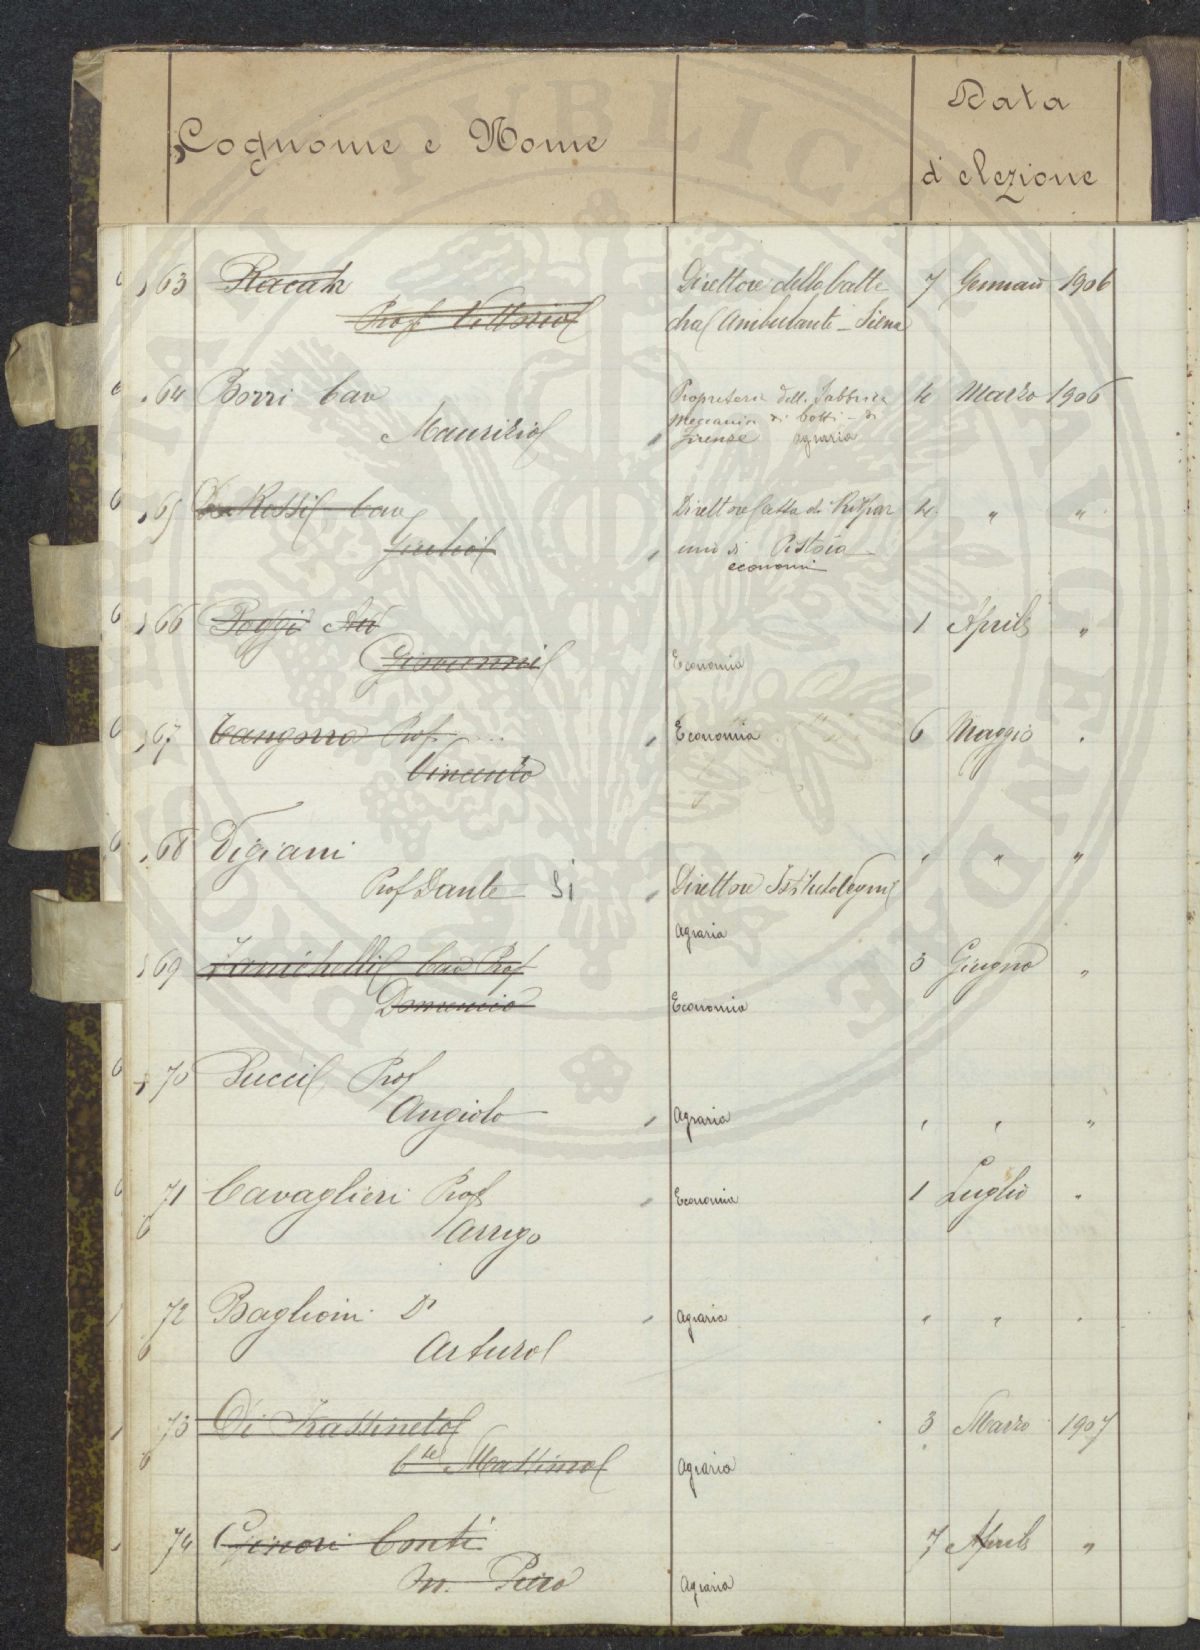 Cognome e Nome
Data
di elezione
63 Racah Direttore della Catte 7 Gennaio 1906
Prof Vittorio dra Ambulante - Siena
64 Borri Cav Propretario della Fabbrica 4 Marzo 1906
Meccanica di botti - di
Maurizio Firenze agraria
65 De Rossi Cav Direttore Cassa di Rispar 4 " "
Giulio mio di Pistoia
economia
66 Poggi Avv 1 Aprile "
Giovanni Economia
67 Tangorra Prof Economia 6 Maggio "
Vincenzo
68 Vigiani " " "
Prof Dante Si Direttore
Agraria
69 Zanichelli Cav Prof 3 Giugno "
Domenico Economia
70 Pucci Prof
Angiolo Agraria " " "
71 Cavaglieri Prof Economia 1 Luglio "
6 Arrigo
72 Baglioni Dr Agraria " " "
6 Arturo
73 Di Frassineto 3 Marzo 1907
6 Cte Massimo Agraria
74 Ginori Conti 7 Aprile "
Piero Agraria